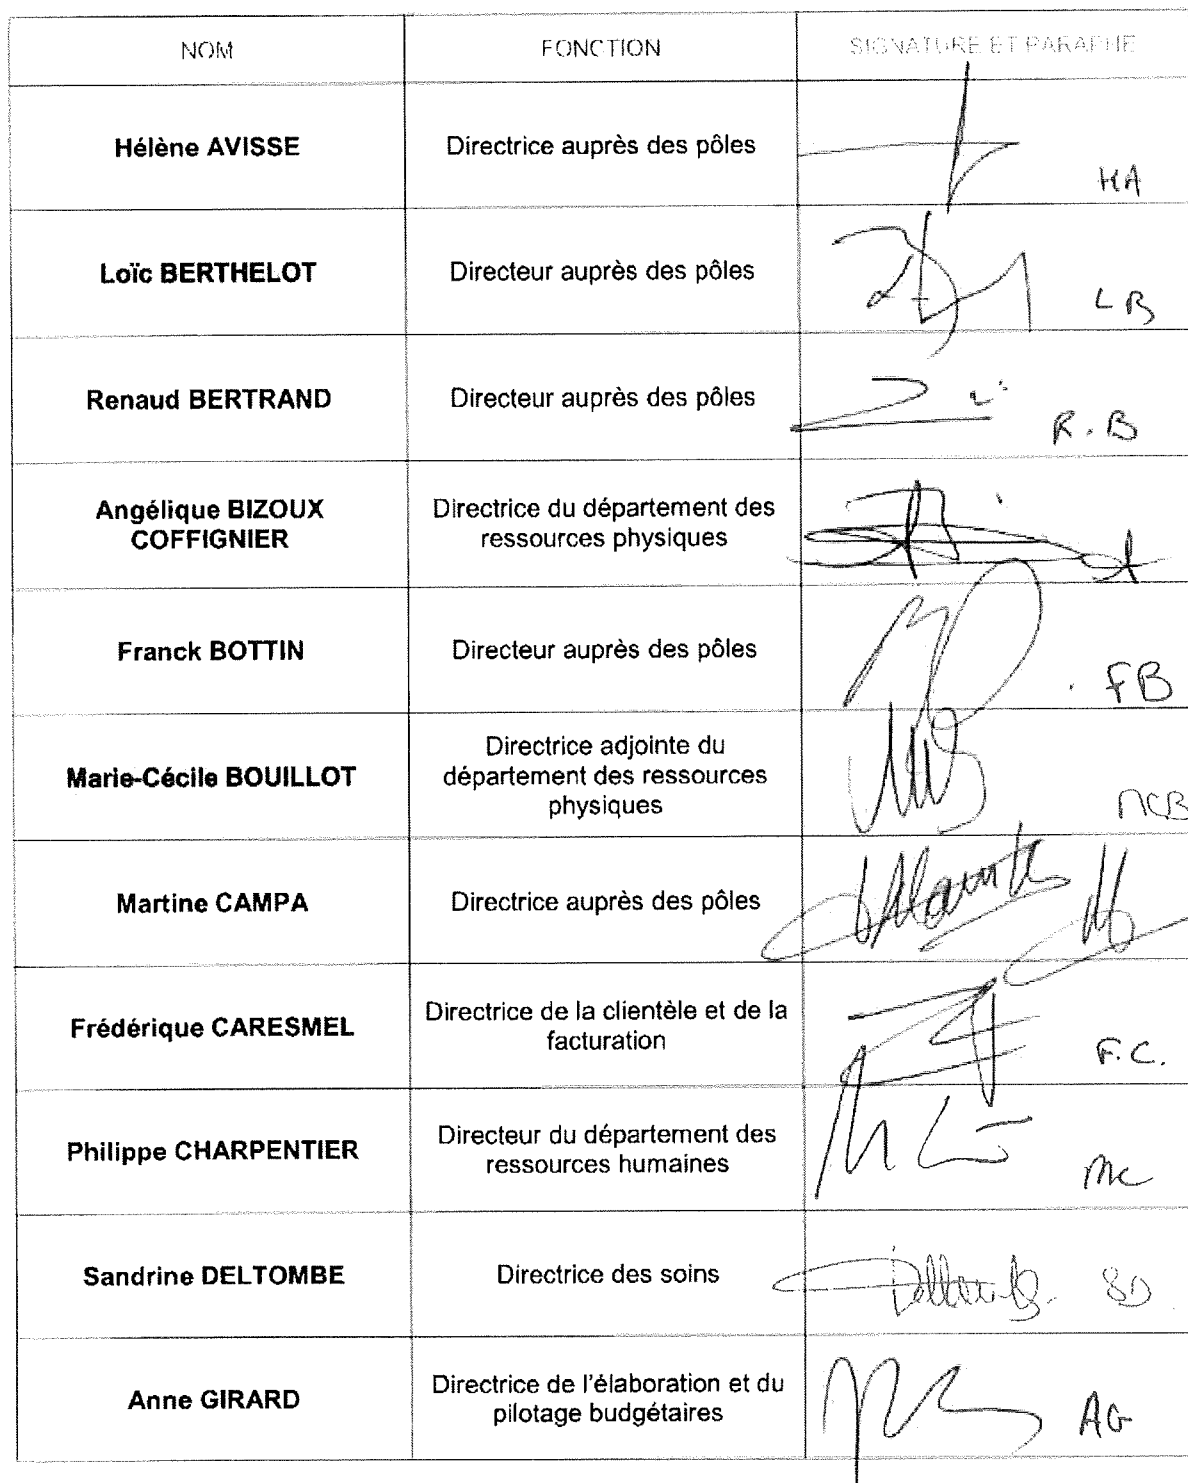 NOM FONCTION SIGNATURE ET PARAPHE
Hélène AVISSE Directrice auprès des pôles
HA
Loïc BERTHELOT Directeur auprès des pôles
LB
Renaud BERTRAND Directeur auprès des pôles
R.B
Angélique BIZOUX
COFFIGNIER
Directrice du département des
ressources physiques
Franck BOTTIN Directeur auprès des pôles
FB
Marie-Cécile BOUILLOT
Directrice adjointe du
département des ressources
physiques
MCB
Martine CAMPA Directrice auprès des pôles
Frédérique CARESMEL
Directrice de la clientèle et de la
facturation
F.C.
Philippe CHARPENTIER
Directeur du département des
ressources humaines
Sandrine DELTOMBE Directrice des soins
SD
Anne GIRARD
Directrice de l'élaboration et du
pilotage budgétaires
AG